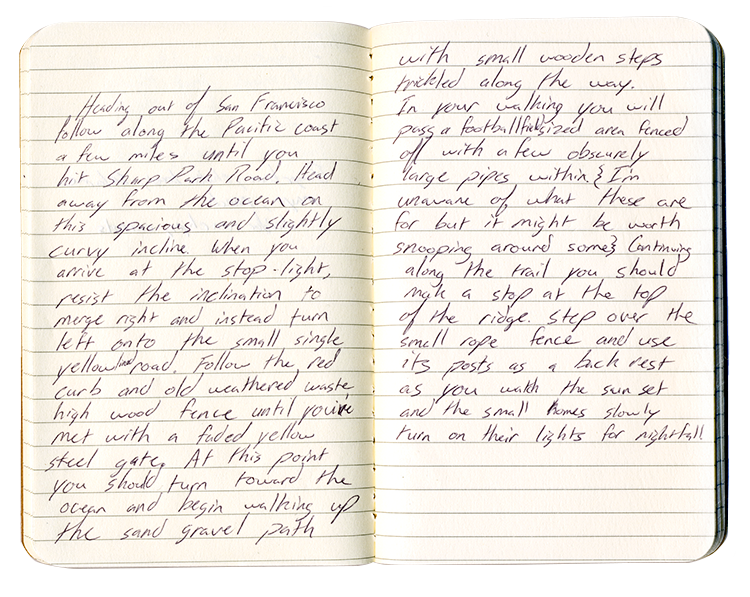 Heading out of San Francisco
follow along the Pacific coast
a few miles until you
hit Sharp Park Road. Head
away from the ocean on
this spacious and slightly
curvy incline. When you
arrive at the stop-light,
resist the inclination to
merge right and instead turn
left onto the small single
yellow lined road. Follow the red
curb and old weathered waste
high wood fence until you're
met with a faded yellow
steel gate. At this point
you should turn toward the
ocean and begin walking up
the sand gravel path
with small wooden steps
trickled along the way.
In your walking you will
pass a football field sized area fenced
off with a few obscurely
large pipes within. { I'm
unaware of what these are
for but it might be worth
snooping around some } Continuing
along the trail you should
make a stop at the top
of the ridge. Step over the
small rope fence and use
its posts as a back rest
as you watch the sun set
and the small homes slowly
turn on their lights for nightfall